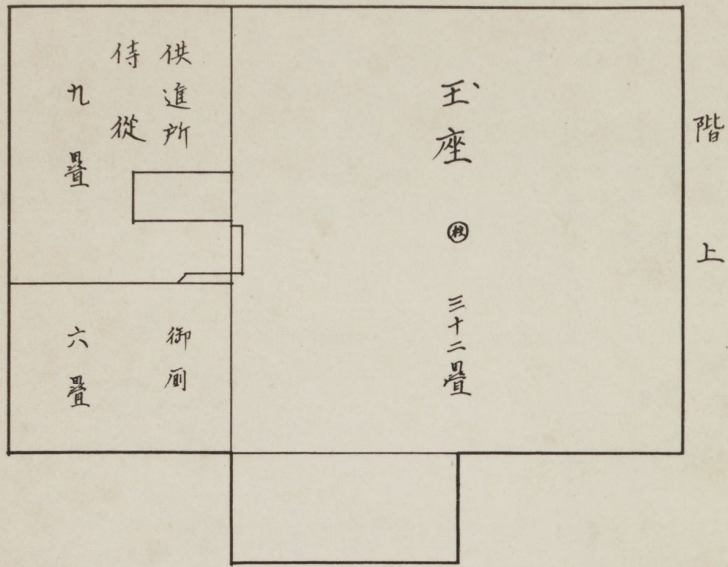 階上
玉座
柱
三十二畳
供進所
侍從
九畳
御厠
六畳